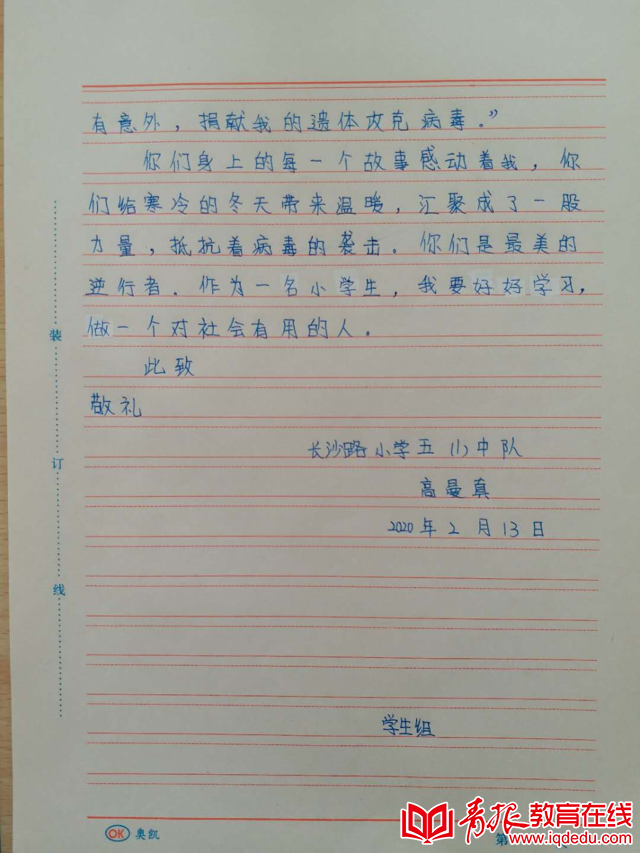 有意外，捐献我的遗体攻克病毒。”
你们身上的每一个故事感动着我，你
们给寒冷的冬天带来温暖，汇聚成了一股
力量，抵抗着病毒的袭击。你们是最美的
逆行者．作为一名小学生，我要好好学习，
做一个对社会有用的人。
此致
敬礼
长沙路小学五（1）中队
高曼真
2020年2月13日
学生组
装
订
线
OK 奥凯
第
青报教育在线
www.iqdedu.com